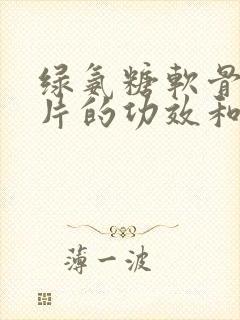 绿氨糖軟骨
片的功效和
薄一波